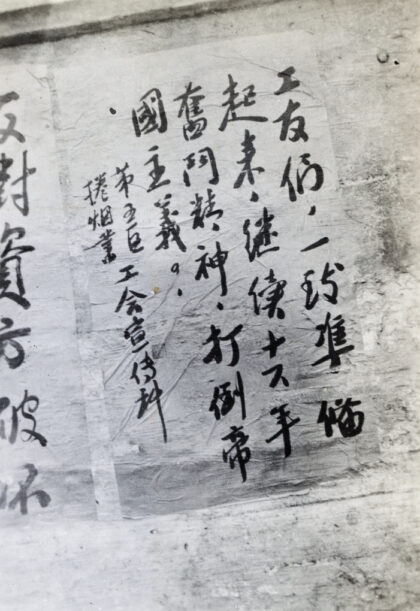 工友們，一致準備
起来，继續十六年
奮鬥精神，打倒帝
國主義。
第五区工会宣傳科
捲烟業
反對資方破坏